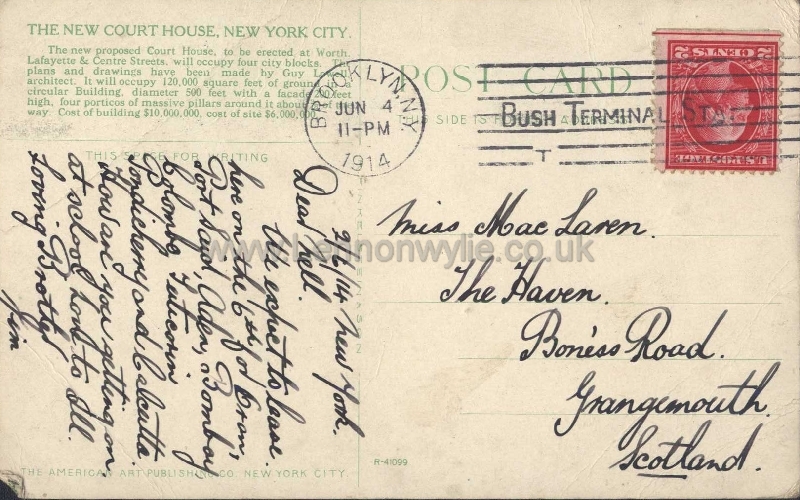 THE NEW COURT HOUSE, NEW YORK CITY.
The new proposed Court House, to be erected at Worth,
Lafayette & Centre Streets, will occupy four city blocks. The
plans and drawings have been made by Guy Lowell
architect. It will occupy 120,000 square feet of ground
circular Building, diameter 500 feet with a facade feet
high, four porticos of massive pillars around it about
way. Cost of building $10,000,000, cost of site $6,000,000
THIS SPACE FOR WRITING
2/6/14 New York.
Dear Nell.
We expect to leave
here on the 6th for Oran,
Port Said, Aden, Bombay
Colombo, Tuticorin
Pondicherry and Calcutta
How are you getting on
at school, howl to Ill.
Loving Brother
Jim
THE AMERICAN ART PUBLISHING CO. NEW YORK CITY.
R-41099
POST CARD
THIS SIDE IS
BROOKLYN, N.Y.
JUN 4
11-PM
1914
BUSH TERMINAL STA.
T
2 CENTS 2
U.S. POSTAGE
Miss Mac Laren.
The Haven.
Boness Road.
Grangemouth.
Scotland.
www.lennonwylie.co.uk